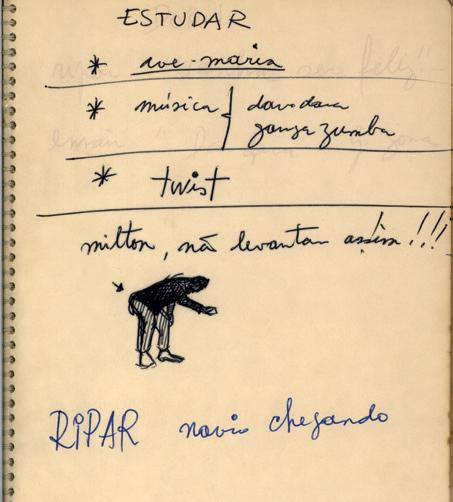 ESTUDAR
* ave-maria
* música { davadava
ganga zumba
* twist
milton, não levantar assim!!!
RIPAR navio chegando